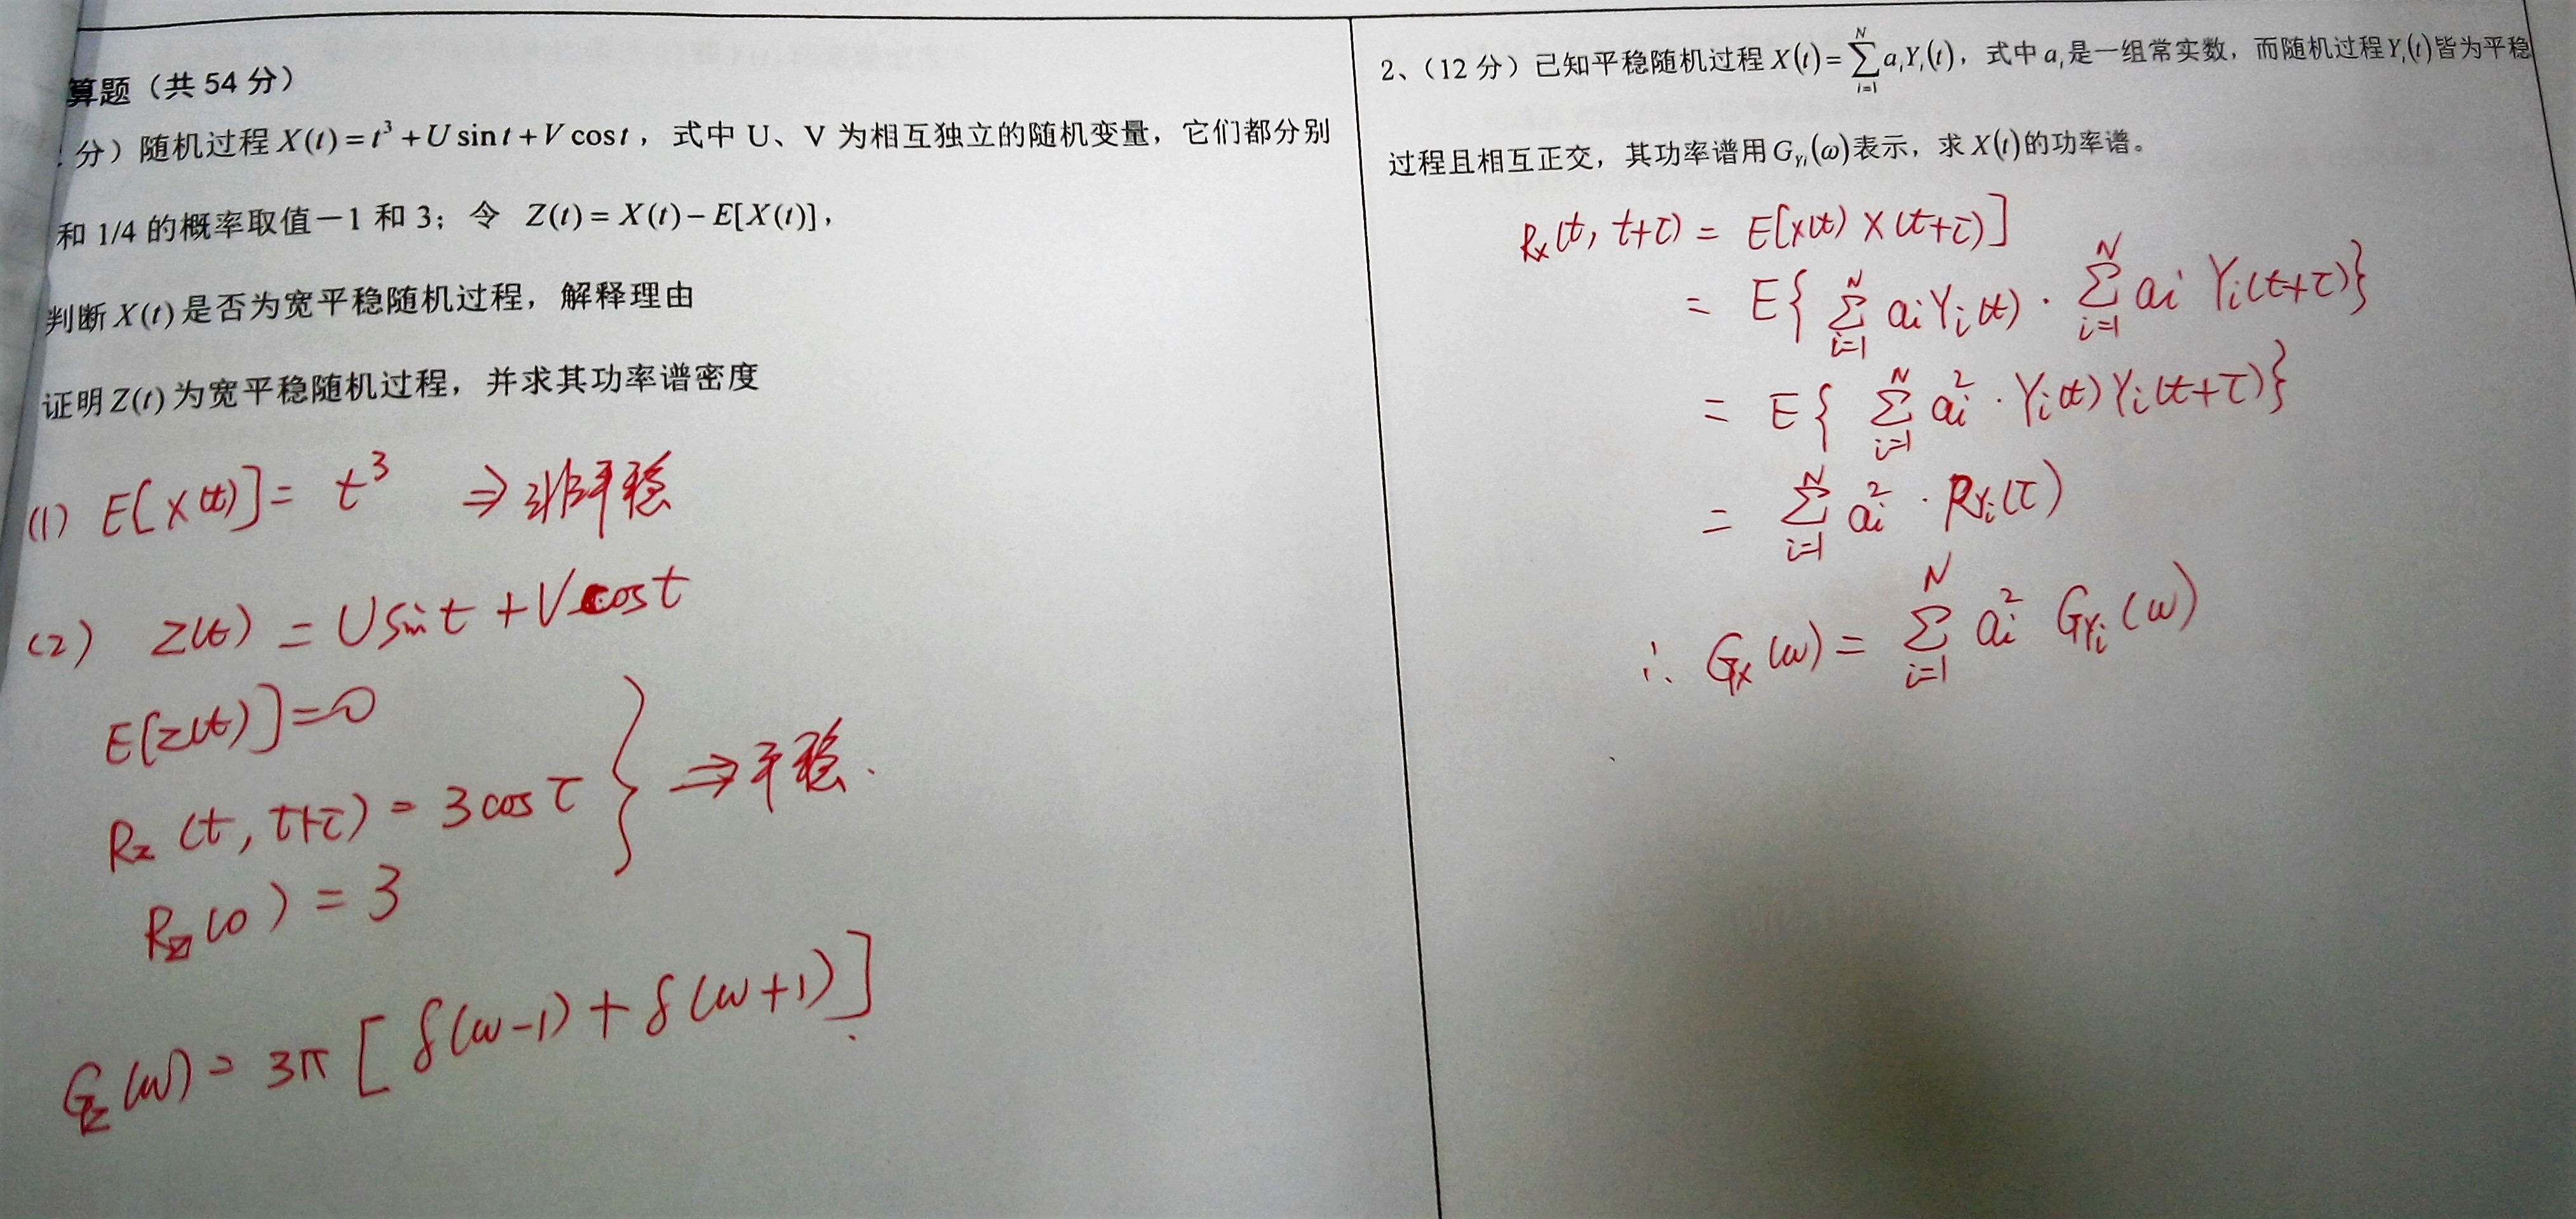 算题（共 54 分）
分）随机过程 X(t)=t³+U sin t+V cos t，式中 U、V 为相互独立的随机变量，它们都分别
和 1/4 的概率取值－1 和 3；令 Z(t)=X(t)−E[X(t)]，
判断 X(t) 是否为宽平稳随机过程，解释理由
证明 Z(t) 为宽平稳随机过程，并求其功率谱密度
(1) E[X(t)]= t³ ⇒ 非平稳
(2) Z(t) = U sin t + V cos t
E[Z(t)]=0
R_Z(t, t+τ) = 3cos τ } ⇒ 平稳.
R_Z(0) = 3
G_Z(ω) = 3π [ δ(ω-1) + δ(ω+1) ]
2、（12 分）已知平稳随机过程 X(t)=∑_{i=1}^{N} a_i Y_i(t)，式中 a_i 是一组常实数，而随机过程 Y_i(t) 皆为平稳
过程且相互正交，其功率谱用 G_{Yi}(ω) 表示，求 X(t) 的功率谱。
R_X(t, t+τ) = E[X(t) X(t+τ)]
= E{ ∑_{i=1}^{N} a_i Y_i(t) · ∑_{i=1}^{N} a_i Y_i(t+τ)}
= E{ ∑_{i=1}^{N} a_i² · Y_i(t) Y_i(t+τ)}
= ∑_{i=1}^{N} a_i² · R_{Yi}(τ)
∴ G_X(ω) = ∑_{i=1}^{N} a_i² G_{Yi}(ω)